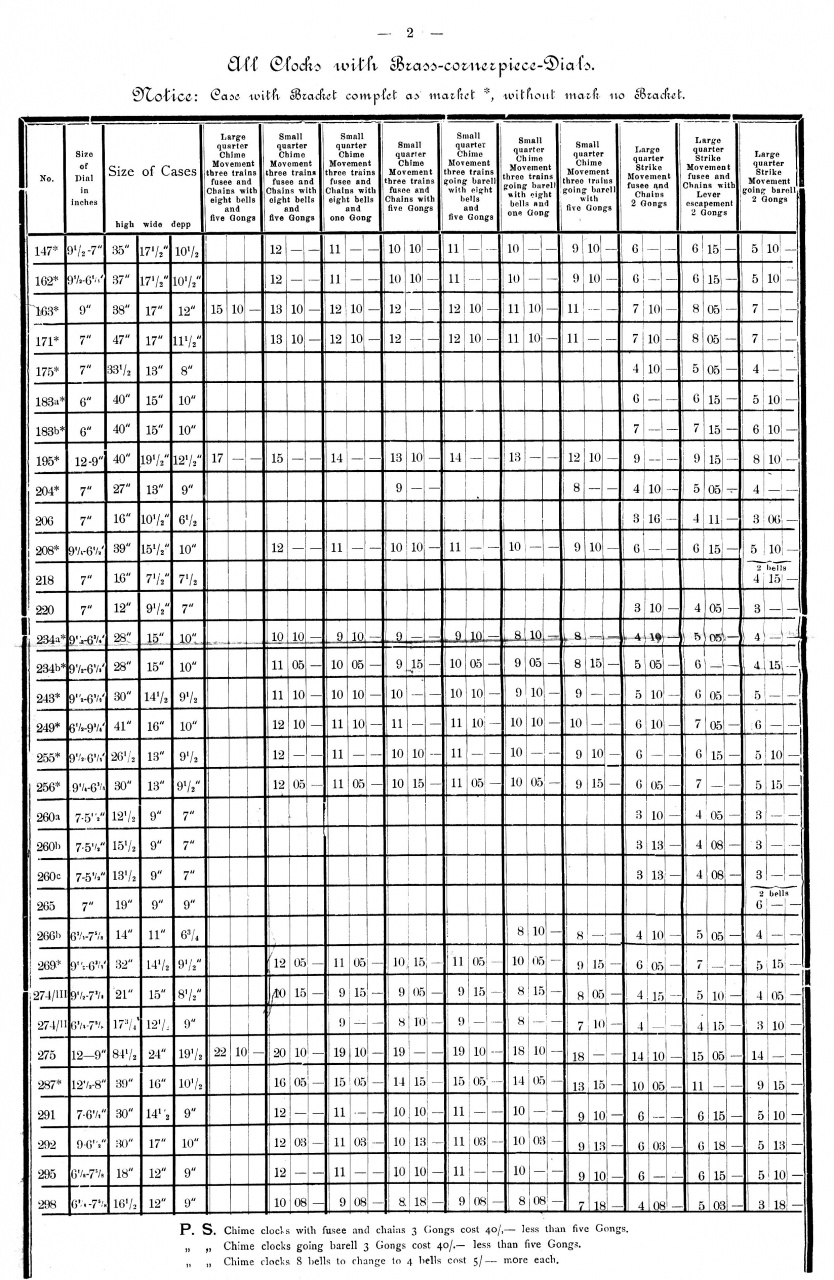 — 2 —
All Clocks with Brass-cornerpiece-Dials.
Notice: Case with Bracket complet as market *, without mark no Bracket.
No. | Size of Dial in inches | Size of Cases high wide depp | Large quarter Chime Movement three trains fusee and Chains with eight bells and five Gongs | Small quarter Chime Movement three trains fusee and Chains with eight bells and five Gongs | Small quarter Chime Movement three trains fusee and Chains with eight bells and one Gong | Small quarter Chime Movement three trains fusee and Chains with five Gongs | Small quarter Chime Movement three trains going barell with eight bells and five Gongs | Small quarter Chime Movement three trains going barell with eight bells and one Gong | Small quarter Chime Movement three trains going barell with five Gongs | Large quarter Strike Movement fusee and Chains 2 Gongs | Large quarter Strike Movement fusee and Chains with Lever escapement 2 Gongs | Large quarter Strike Movement going barell 2 Gongs
147* | 9 1/2-7" | 35" | 17 1/2" | 10 1/2 | | 12 — — | 11 — — | 10 10 — | 11 — — | 10 — — | 9 10 — | 6 — — | 6 15 — | 5 10 —
162* | 9 1/2-6 1/4" | 37" | 17 1/2" | 10 1/2" | | 12 — — | 11 — — | 10 10 — | 11 — — | 10 — — | 9 10 — | 6 — — | 6 15 — | 5 10 —
163* | 9" | 38" | 17" | 12" | 15 10 — | 13 10 — | 12 10 — | 12 — — | 12 10 — | 11 10 — | 11 — — | 7 10 — | 8 05 — | 7 — —
171* | 7" | 47" | 17" | 11 1/2" | | 13 10 — | 12 10 — | 12 — — | 12 10 — | 11 10 — | 11 — — | 7 10 — | 8 05 — | 7 — —
175* | 7" | 33 1/2 | 13" | 8" | | | | | | | | 4 10 — | 5 05 — | 4 — —
183a* | 6" | 40" | 15" | 10" | | | | | | | | 6 — — | 6 15 — | 5 10 —
183b* | 6" | 40" | 15" | 10" | | | | | | | | 7 — — | 7 15 — | 6 10 —
195* | 12-9" | 40" | 19 1/2" | 12 1/2" | 17 — — | 15 — — | 14 — — | 13 10 — | 14 — — | 13 — — | 12 10 — | 9 — — | 9 15 — | 8 10 —
204* | 7" | 27" | 13" | 9" | | | | 9 — — | | | 8 — — | 4 10 — | 5 05 — | 4 — —
206 | 7" | 16" | 10 1/2" | 6 1/2 | | | | | | | | 3 16 — | 4 11 — | 3 06 —
208* | 9 1/2-6 1/4" | 39" | 15 1/2" | 10" | | 12 — — | 11 — — | 10 10 — | 11 — — | 10 — — | 9 10 — | 6 — — | 6 15 — | 5 10 —
218 | 7" | 16" | 7 1/2" | 7 1/2 | | | | | | | | | | 2 bells 4 15 —
220 | 7" | 12" | 9 1/2" | 7" | | | | | | | | 3 10 — | 4 05 — | 3 — —
234a* | 9 1/2-6 1/4" | 28" | 15" | 10" | | 10 10 — | 9 10 — | 9 — — | 9 10 — | 8 10 — | 8 — — | 4 10 — | 5 05 — | 4 — —
234b* | 9 1/2-6 1/4" | 28" | 15" | 10" | | 11 05 — | 10 05 — | 9 15 — | 10 05 — | 9 05 — | 8 15 — | 5 05 — | 6 — — | 4 15 —
243* | 9 1/2-6 1/4" | 30" | 14 1/2 | 9 1/2 | | 11 10 — | 10 10 — | 10 — — | 10 10 — | 9 10 — | 9 — — | 5 10 — | 6 05 — | 5 — —
249* | 6 1/2-9 1/4" | 41" | 16" | 10" | | 12 10 — | 11 10 — | 11 — — | 11 10 — | 10 10 — | 10 — — | 6 10 — | 7 05 — | 6 — —
255* | 9 1/2-6 1/4" | 26 1/2 | 13" | 9 1/2 | | 12 — — | 11 — — | 10 10 — | 11 — — | 10 — — | 9 10 — | 6 — — | 6 15 — | 5 10 —
256* | 9 1/4-6 1/4 | 30" | 13" | 9 1/2" | | 12 05 — | 11 05 — | 10 15 — | 11 05 — | 10 05 — | 9 15 — | 6 05 — | 7 — — | 5 15 —
260a | 7-5 1/2" | 12 1/2 | 9" | 7" | | | | | | | | 3 10 — | 4 05 — | 3 — —
260b | 7-5 1/2" | 15 1/2 | 9" | 7" | | | | | | | | 3 13 — | 4 08 — | 3 — —
260c | 7-5 1/2" | 13 1/2 | 9" | 7" | | | | | | | | 3 13 — | 4 08 — | 3 — —
265 | 7" | 19" | 9" | 9" | | | | | | | | | | 2 bells 6 — —
266b | | 14" | 11" | 6 3/4 | | | | | | 8 10 — | 8 — — | 4 10 — | 5 05 — | 4 — —
269* | | 32" | 14 1/2 | 9 1/2" | | 12 05 — | 11 05 — | 10 15 — | 11 05 — | 10 05 — | 9 15 — | 6 05 — | 7 — — | 5 15 —
274/III | | 21" | 15" | 8 1/2" | | 10 15 — | 9 15 — | 9 05 — | 9 15 — | 8 15 — | 8 05 — | 4 15 — | 5 10 — | 4 05 —
274/II | | 17 3/4" | 12 1/2 | 9" | | | 9 — — | 8 10 — | 9 — — | 8 — — | 7 10 — | 4 — — | 4 15 — | 3 10 —
275 | 12—9" | 84 1/2 | 24" | 19 1/2 | 22 10 — | 20 10 — | 19 10 — | 19 — — | 19 10 — | 18 10 — | 18 — — | 14 10 — | 15 05 — | 14 — —
287* | 12 1/2-8" | 39" | 16" | 10 1/2 | | 16 05 — | 15 05 — | 14 15 — | 15 05 — | 14 05 — | 13 15 — | 10 05 — | 11 — — | 9 15 —
291 | 7-6 1/4" | 30" | 14 1/2 | 9" | | 12 — — | 11 — — | 10 10 — | 11 — — | 10 — — | 9 10 — | 6 — — | 6 15 — | 5 10 —
292 | 9-6 1/2" | 30" | 17" | 10" | | 12 03 — | 11 03 — | 10 13 — | 11 03 — | 10 03 — | 9 13 — | 6 03 — | 6 18 — | 5 13 —
295 | | 18" | 12" | 9" | | 12 — — | 11 — — | 10 10 — | 11 — — | 10 — — | 9 10 — | 6 — — | 6 15 — | 5 10 —
298 | | 16 1/2 | 12" | 9" | | 10 08 — | 9 08 — | 8 18 — | 9 08 — | 8 08 — | 7 18 — | 4 08 — | 5 03 — | 3 18 —
P. S. Chime clocks with fusee and chains 3 Gongs cost 40/,— less than five Gongs.
„ „ Chime clocks going barell 3 Gongs cost 40/,— less than five Gongs.
„ „ Chime clocks 8 bells to change to 4 bells cost 5/— more each.